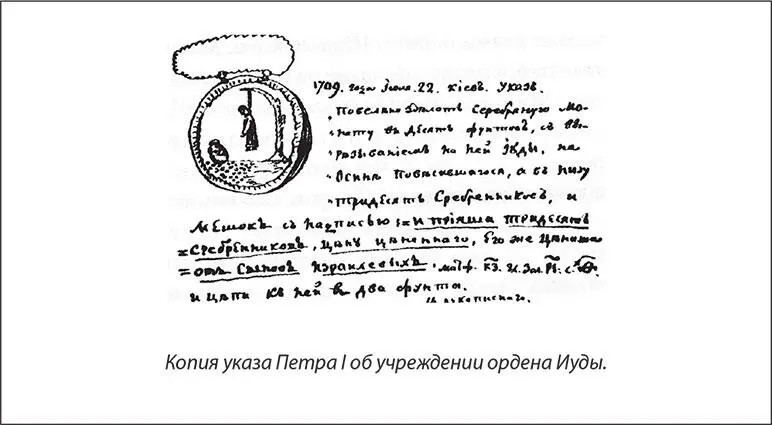 1709. года Iюля. 22. Кiевъ. Указъ.
Повелено Дѣлать Серебряную Мо-
нету въ Десять фунтовъ, съ вы-
разыванiемъ на ней Iуды, на
Осинѣ повѣсившагося, а въ низу
тридесять Сребренниковъ, и
Мешокъ съ надписью := и прiяша тридесять
= Сребренниковъ, цѣну цененнаго, Его же цениша
= отъ Сыновъ Израилевыхъ. матф. КЗ.
и цепи къ ней въ два фунта.
Копия указа Петра I об учреждении ордена Иуды.